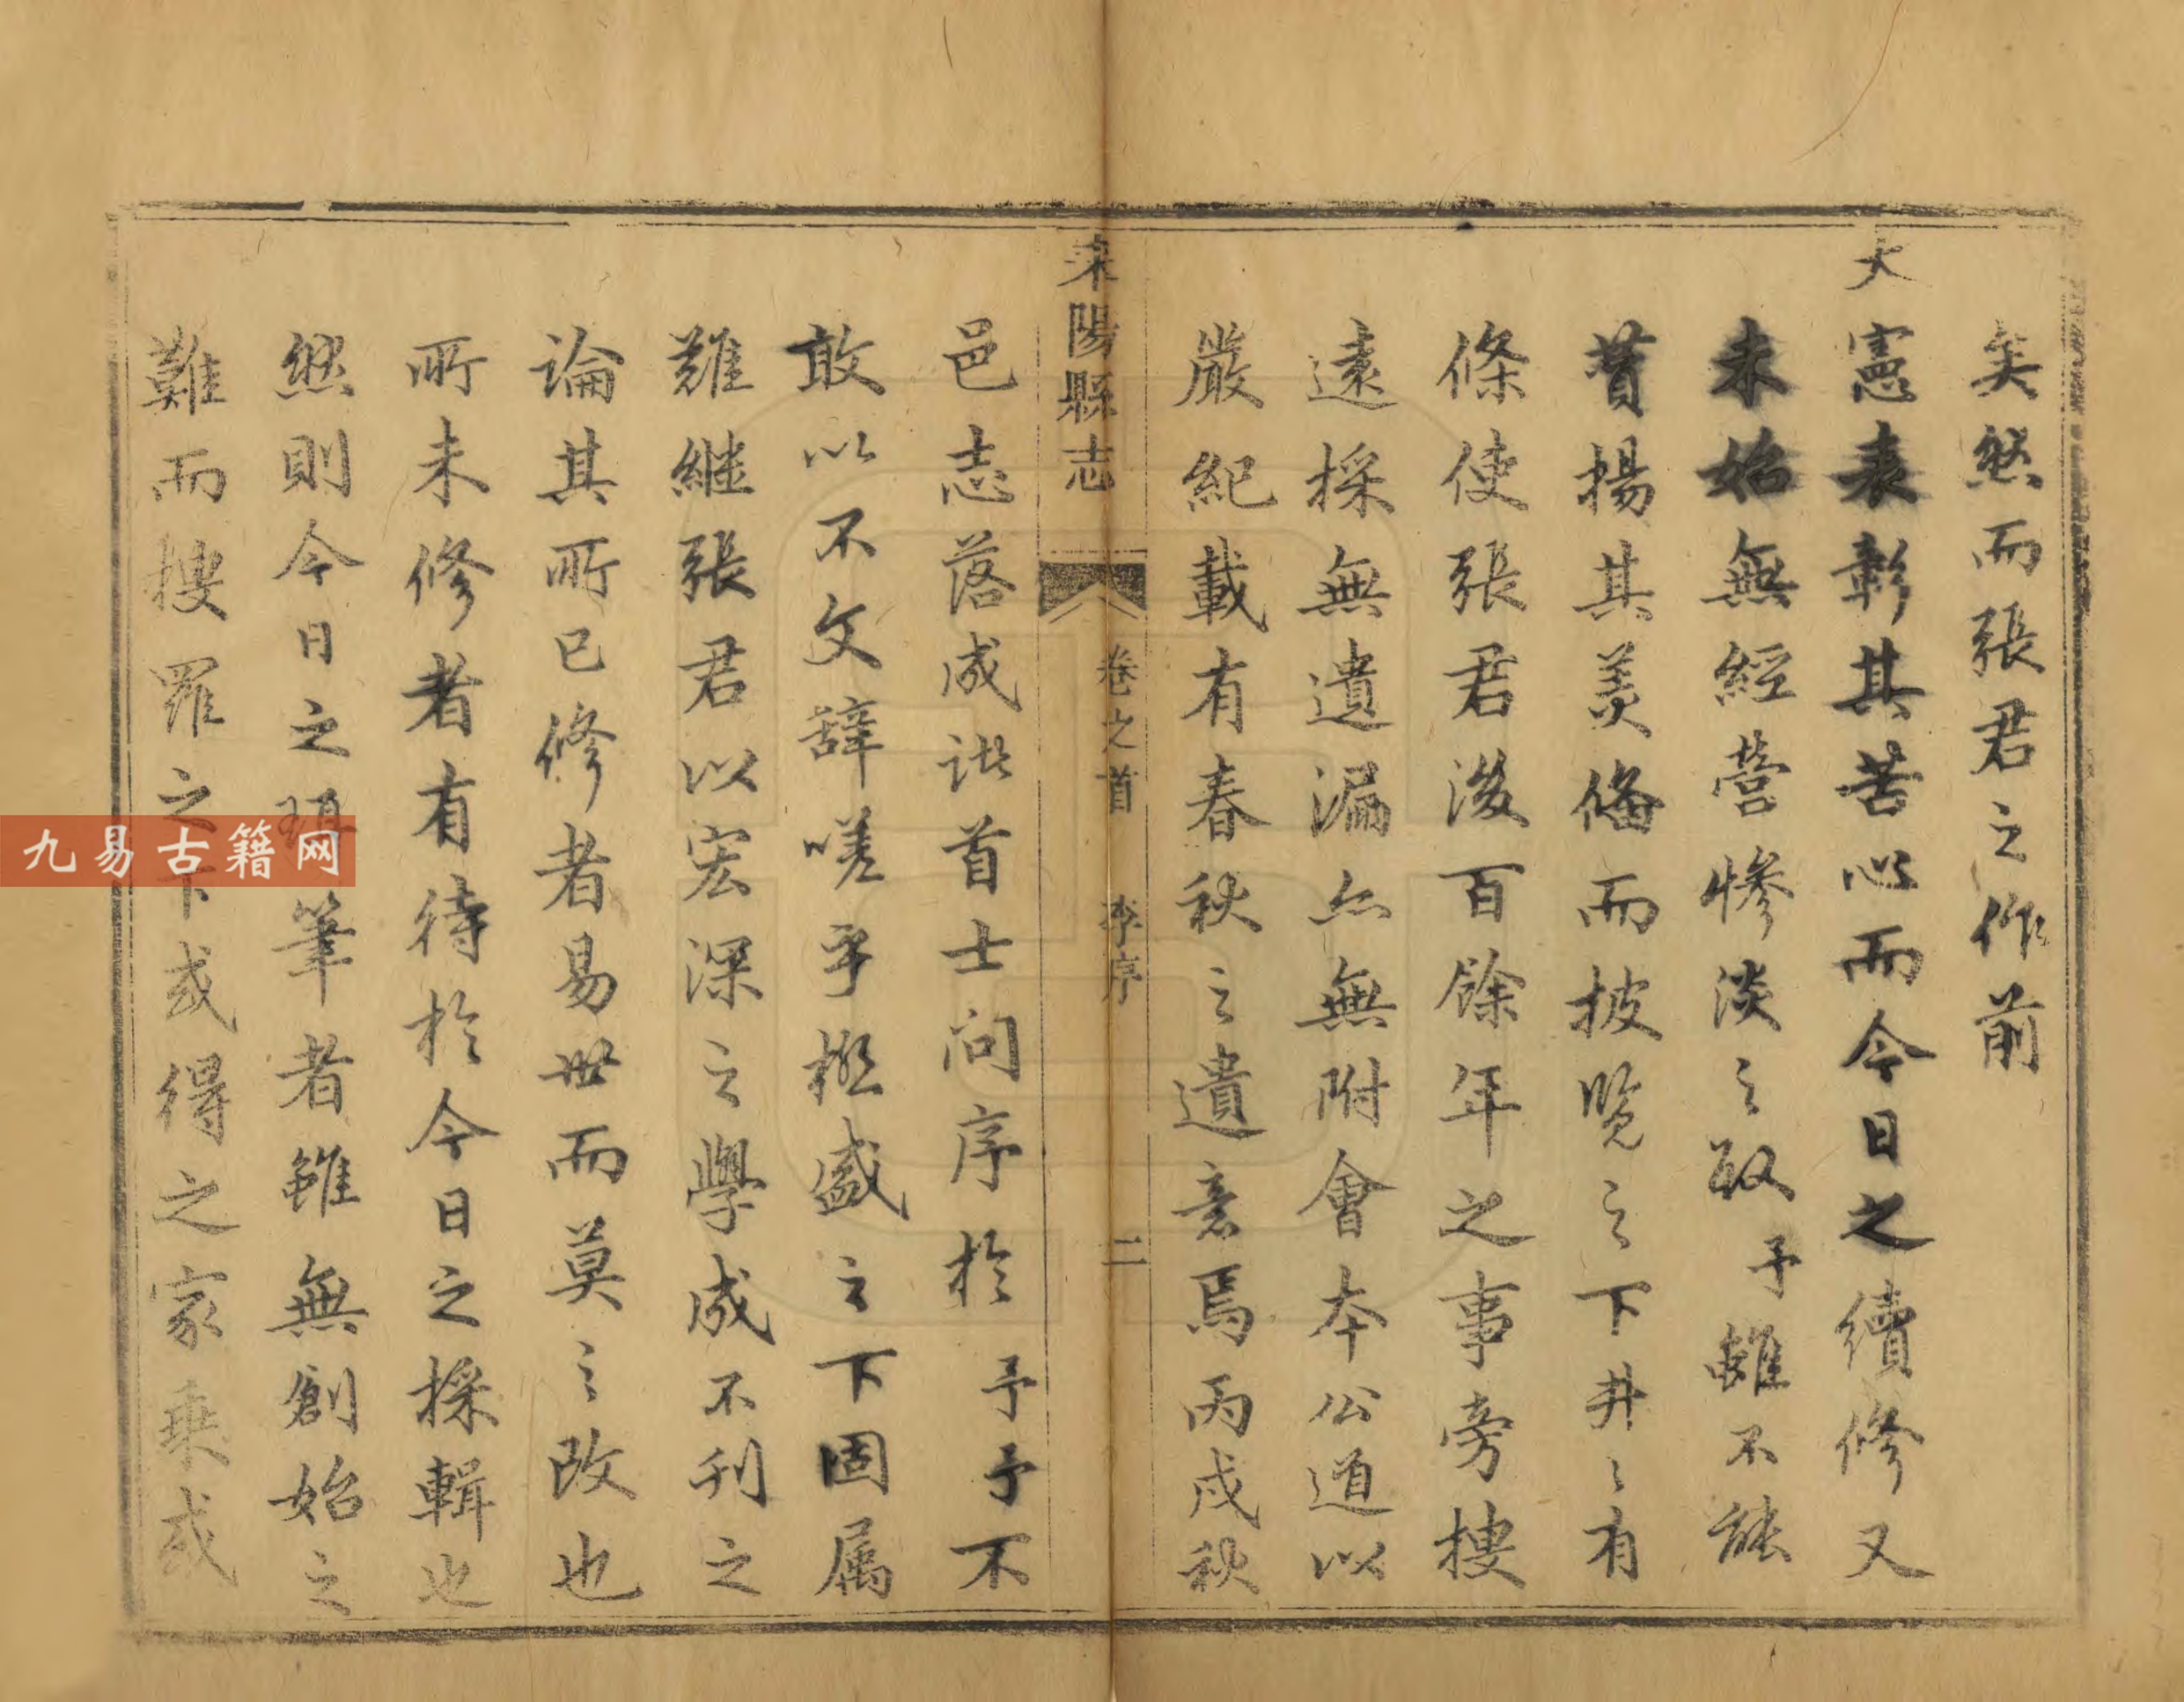 矣然而張君之作前
大憲表彰其苦心而今日之續修又
未始無經營慘淡之㪅予雖不能
賛揚其美俻而披覧之下井〻有
條使張君後百餘年之事旁搜
遠採無遺漏亦無附會本公道以
嚴紀載有春秋之遺意焉丙戌秋
耒陽縣志
卷之首 李序 二
邑志落成諸首士问序於予予不
敢以不文辭嗟乎極盛之下固属
難継張君以宏深之學成不刋之
論其所已修者易世而莫之改也
所未修者有待於今日之採輯也
然則今日之筆者雖無創始之
難而搜羅之下或得之家乗或
九易古籍网